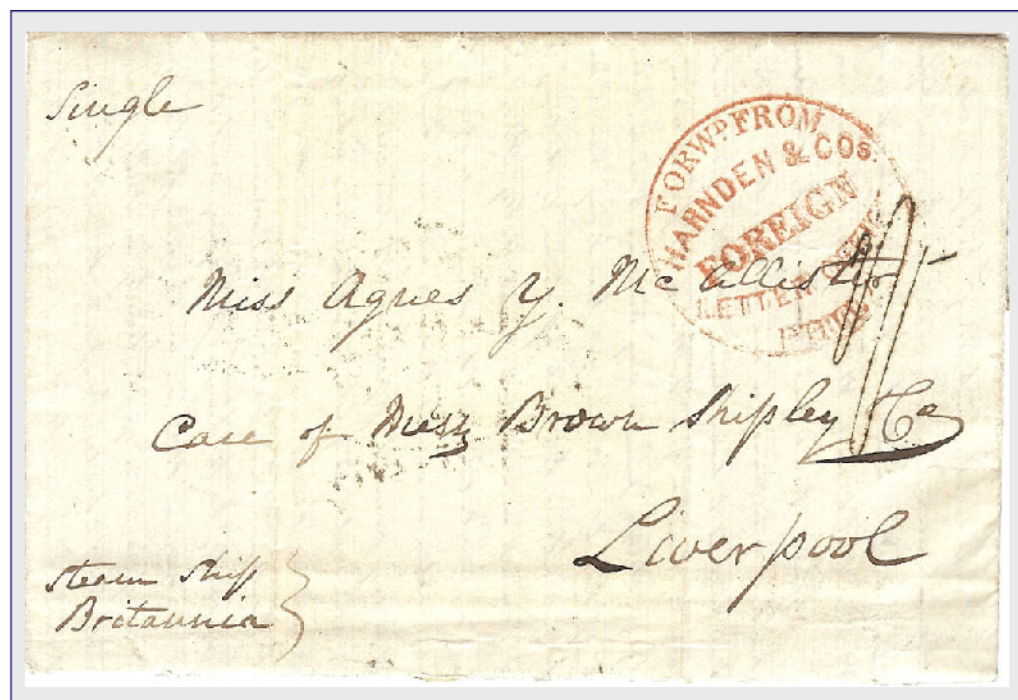 Single
FORWD. FROM
HARNDEN & COS.
FOREIGN
LETTER
Miss Agnes Y. McAllister
Care of Mess Brown Shipley & Co
Liverpool
Steam Ship
Britannia